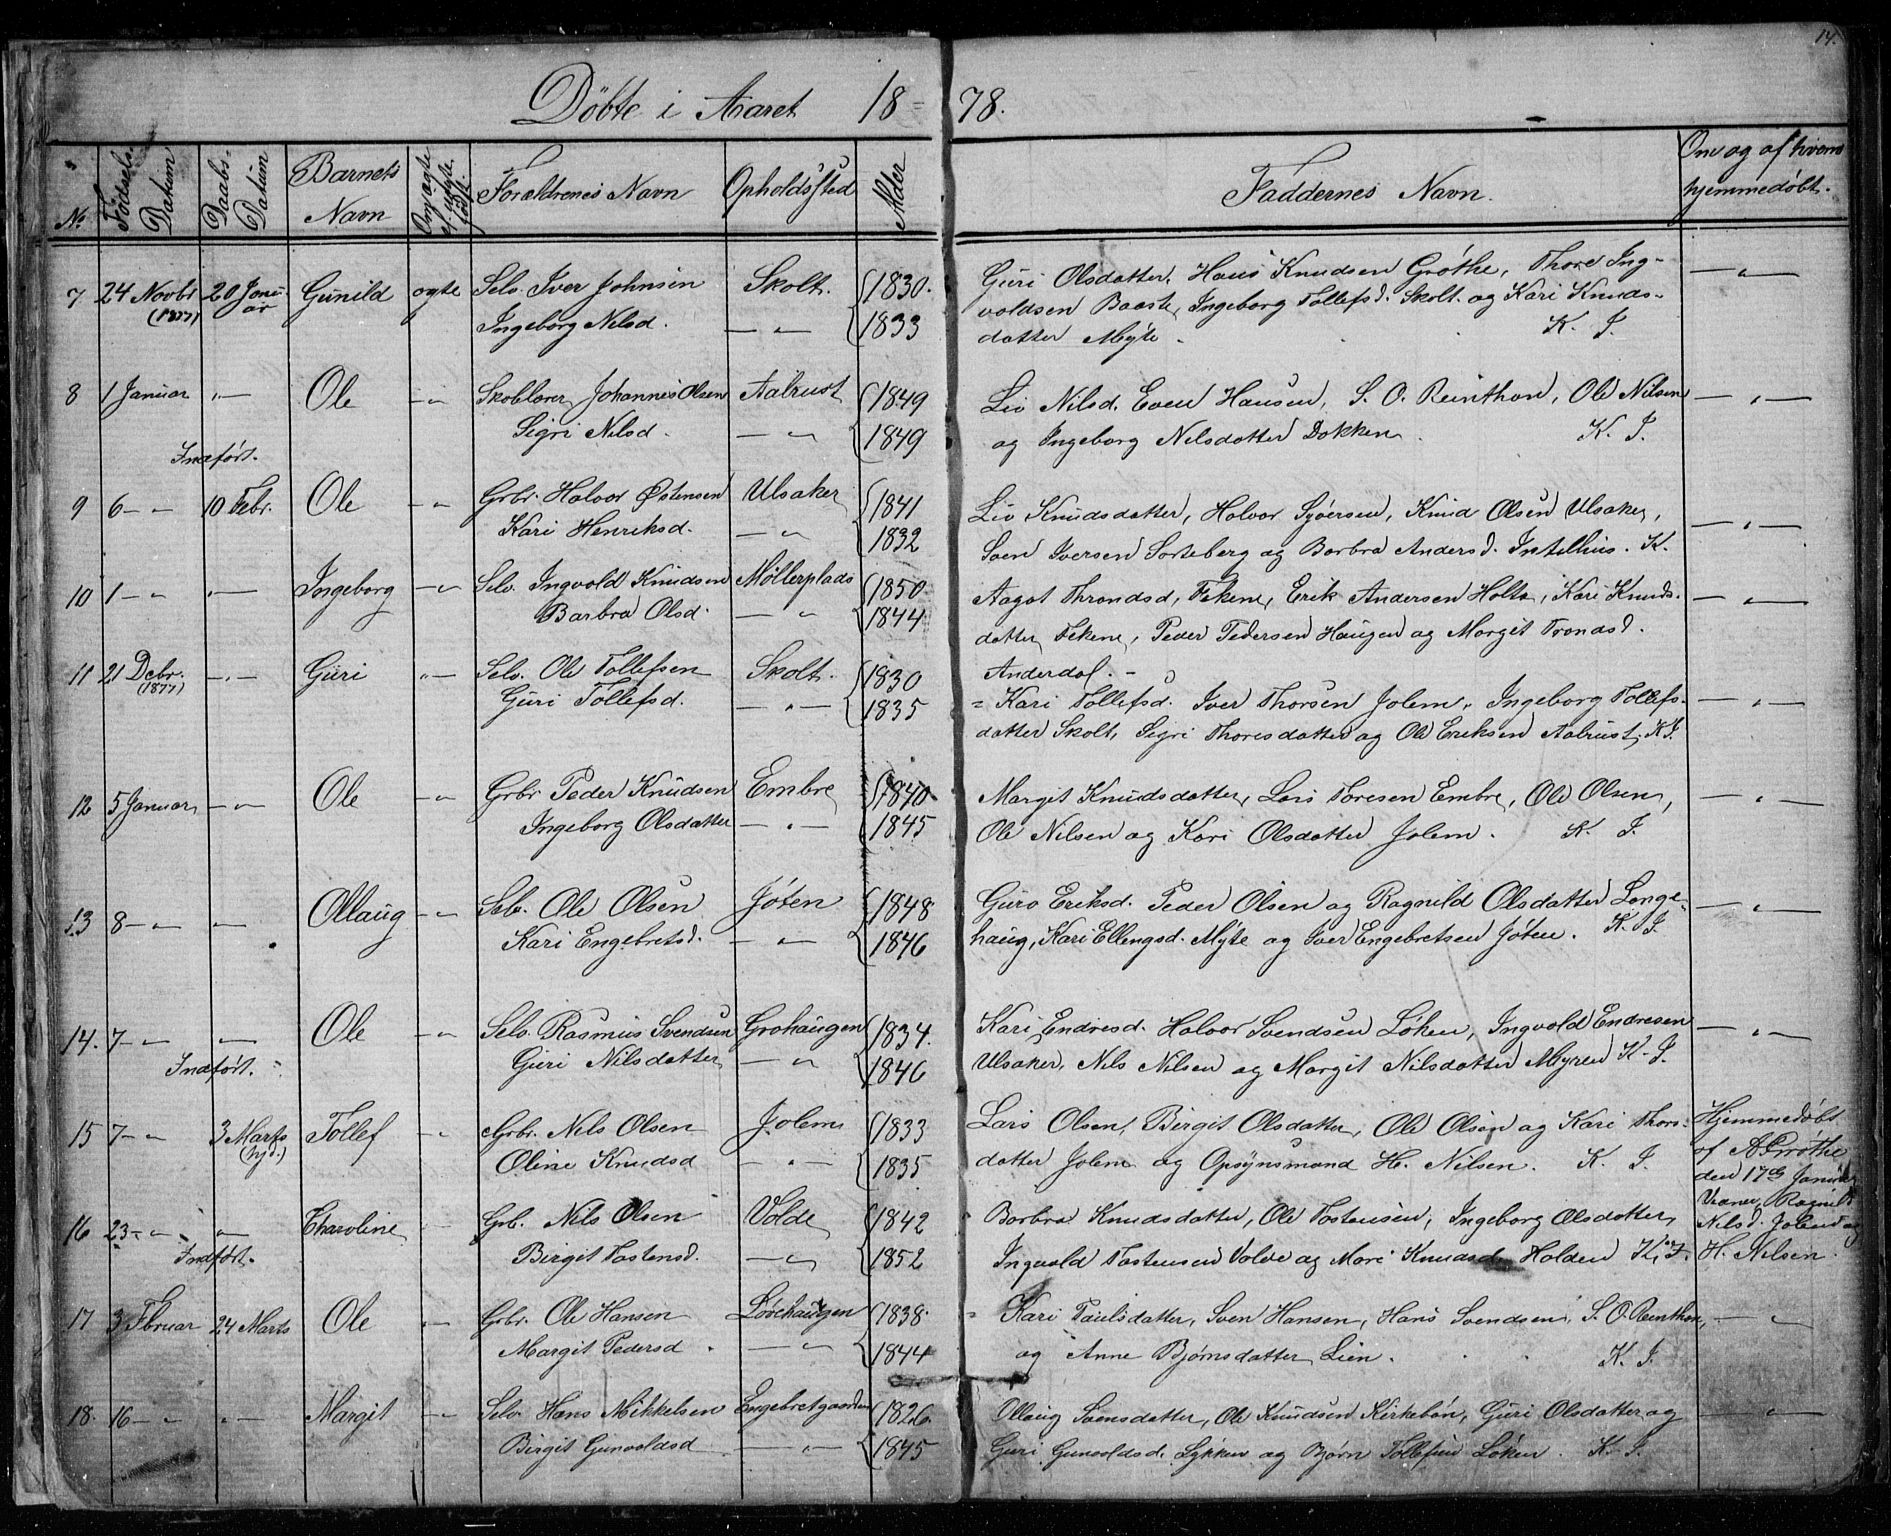 14.
Döbte i Aaret 18=78.
No. Födsels Datum Daabs- Datum Barnets Navn Om ægte el. uægte født. Forældrenes Navn Opholdssted Alder Faddernes Navn. Om og af hvem hjemmedöbt.
7 24 Novbr (1877) 20 Janu- ar Gunild ægte Selv. Iver Johnsen Skolt. 1830. Guri Olsdatter, Hans Knudsen Gröthe, Thore Ing-
Ingeborg Nilsd. — „ — 1833 voldsen Baaste, Ingeborg Tollefsd. Skolt. og Kari Knuds-
datter Myte. K. I.
8 1 Januar „— Ole — „ Johannes Olsen Aalrust 1849 Liv Nilsd. Even Hansen, S. O. Reinthon, Ole Nilsen — „ —
Sigri Nilsd. — „ 1849 og Ingeborg Nilsdatter Dokken. K. I.
Indført.
9 6 — „ 10 Febr. Ole — „ Grbr. Halvor Østensen Ulsaker 1841 Liv Knudsdatter, Halvor Syversen, Knud Olsen Ulsaker,
Kari Henriksd. — „ 1832 Sven Iversen Sorteberg og Barbra Andersd. K. — „ —
10 1 — „ „— Ingeborg — „ Selv. Ingvold Knudsen Möllerplads 1850. Aagot Throndsd, Ekene, Erik Andersen Holto, Kari Knuds- — „ —
Barbra Olsd. — „ 1844 datter Ekene, Peder Pedersen Haugen og Margit Tronds d.
Anderdal. —
11 21 Debr. (1877) — „ — Guri „ — Selv. Ole Tollefsen Skolt. 1830 = Kari Tollefsd. Iver Thorsen Jolem, Ingeborg Tollefs- — „ —
Guri Tollefsd. — „ — 1835 datter Skolt, Sigri Thoresdatter og Ole Eriksen Aalrust. K. I.
12 5 Januar — „ Ole — „ Grbr Peder Knudsen Embre 1840. Margit Knudsdatter, Lars Toresen Embre, Ole Olsen, — „ —
Ingeborg Olsdatter — „ — 1845 Ole Nilsen og Kari Olsdatter Jolem. K. I.
13 8 — „ — „ — Ollaug — „ Selv. Ole Olsen Jöten 1848 Guro Eriksd. Peder Olsen og Ragnild Olsdatter Longe- — „ —
Kari Engebretsd. — „ — 1846 haug, Kari Ellingsd. Myte og Iver Engebretsen Jöten. K. I.
14. 7 — „ — „ — Ole — „ Selv. Rasmus Svendsen Grohaugen 1834. Kari Endresd. Halvor Svendsen Löken, Ingvold Endresen — „ —
Indført. Guri Nilsdatter — „ 1846 Ulsaker, Nils Nilsen og Margit Nilsdatter Myren K. I.
15 7 — „ 3 Marts (hjd.) Tollef — „ Grbr. Nils Olsen Jolem 1833 Lars Olsen, Birgit Olsdatter, Ole Olsen og Kari Thors- Hjemmedöbt
Oline Knudsd — „ — 1835 datter Jolem og Opsynsmand H. Nilsen. K. I. af A. Gröthe
den 17de Januar
16 23 — „ — „ — Charoline — Grb. Nils Olsen Volde 1842 Barbra Knudsdatter, Ole Tostensen, Ingeborg Olsdatter, Vidner Ragnild
Indført. Birgit Tostensd. — „ 1852 Ingvald Tostensen Volde og Mari Knudsd Halden K. I. Nilsd. Jolem og
H. Nilsen.
17 3 Fbruar 24 Marts Ole — Grbr. Ole Hansen Lövehaugen 1838. = Kari Paulsdatter, Sven Hansen, Hans Svendsen, S. O. Renthon, — „
Margit Pedersd. — „ 1844 og Anne Bjørnsdatter Lien. K. I.
18. 16 — „ „ — Margit — „ Selv. Hans Mikkelsen Engebretgaarden 1826. Ollaug Svensdatter, Ole Knudsen Kirkebön, Guri Olsdatter og — „ —
Birgit Gunvoldsd — „ — 1845 Guri Gunvoldsd. Lykken og Bjørn Tollefsen Löken. K. I.